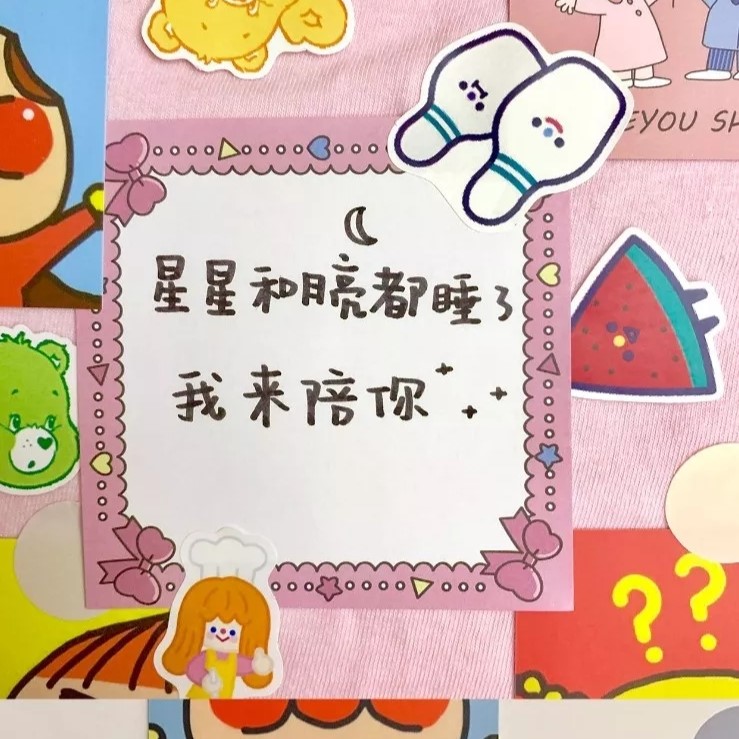 EYOU SH
星星和月亮都睡了
我来陪你
??